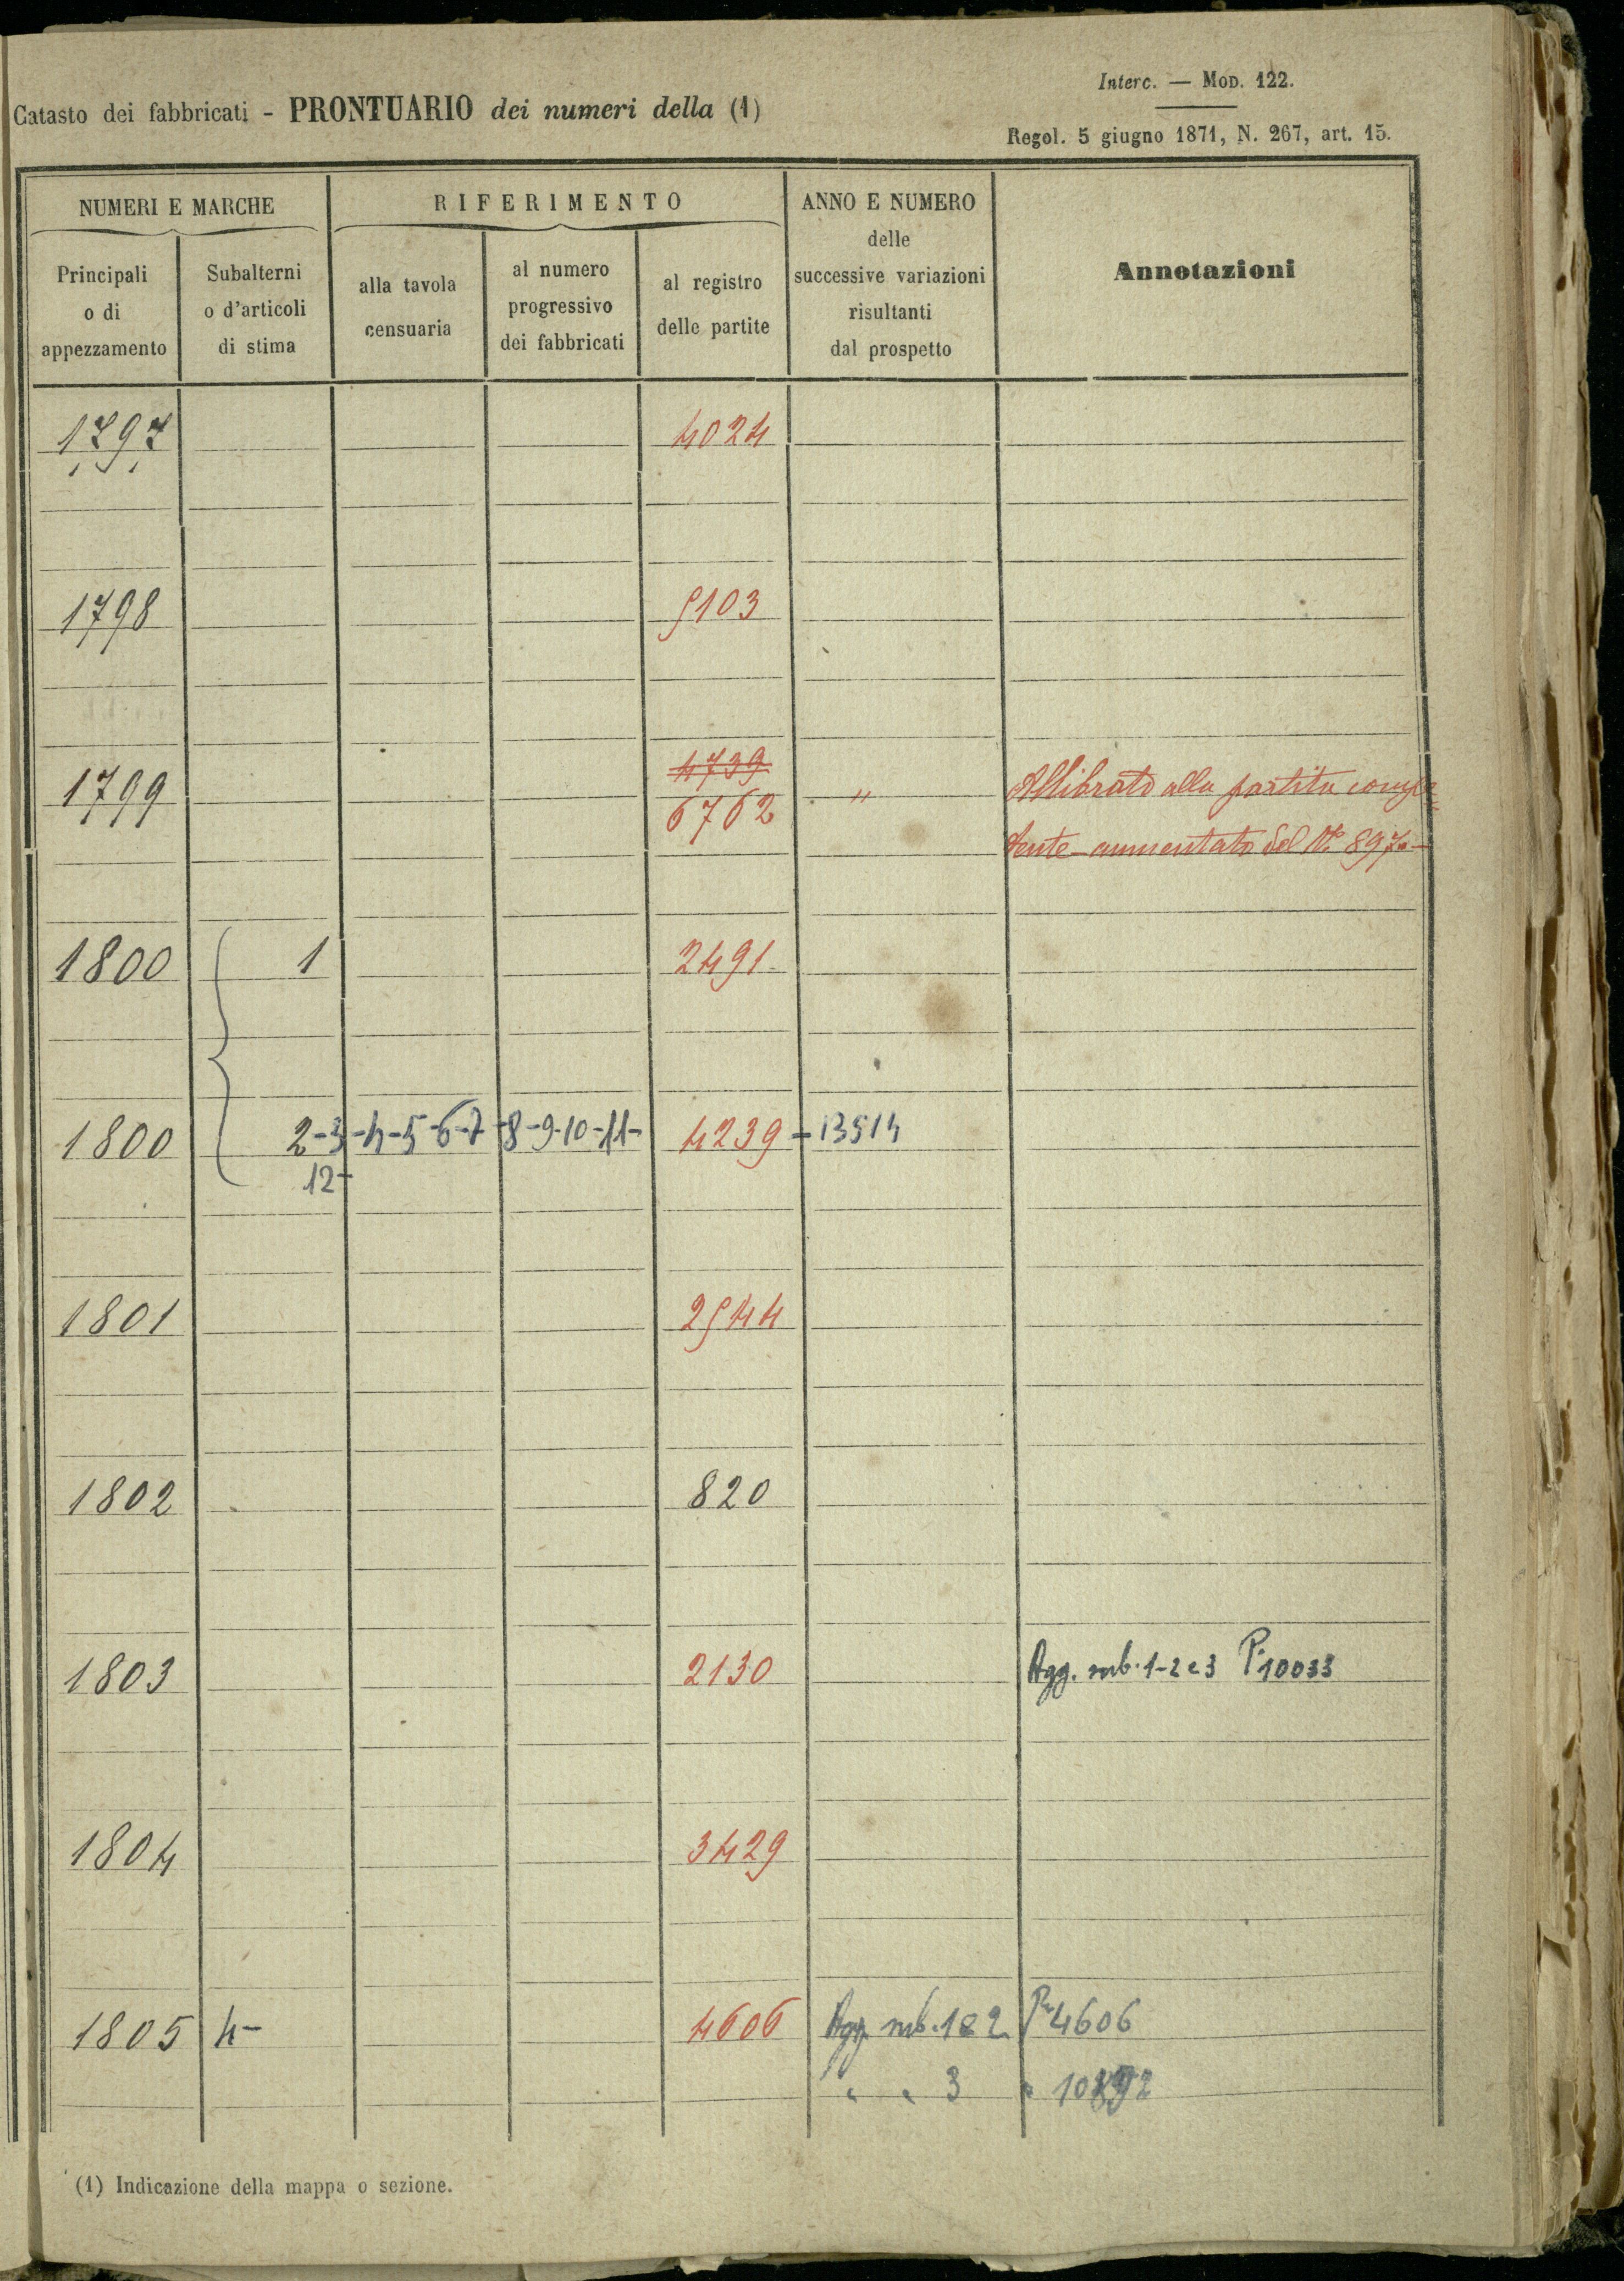 Interc. — Mod. 122.
Catasto dei fabbricati - PRONTUARIO dei numeri della (1)
Regol. 5 giugno 1871, N. 267, art. 15.
NUMERI E MARCHE
RIFERIMENTO
ANNO E NUMERO
delle
successive variazioni
risultanti
dal prospetto
Annotazioni
Principali
o di
appezzamento
Subalterni
o d'articoli
di stima
alla tavola
censuaria
al numero
progressivo
dei fabbricati
al registro
delle partite
1797 4024
1798 5103
4739
1799 6762 " Allibrato alla partita compe
tente aumentato del N.º 897
1800 1 2491
1800 2-3-4-5-6-7-8-9-10-11- 4239 - 13514
12-
1801 2544
1802 820
1803 2130 Agg. sub. 1-2 e 3 P. 10033
1804 3429
1805 4- 4606 Agg. sub. 1 e 2 Pa 4606
" " 3 "
(1) Indicazione della mappa o sezione.